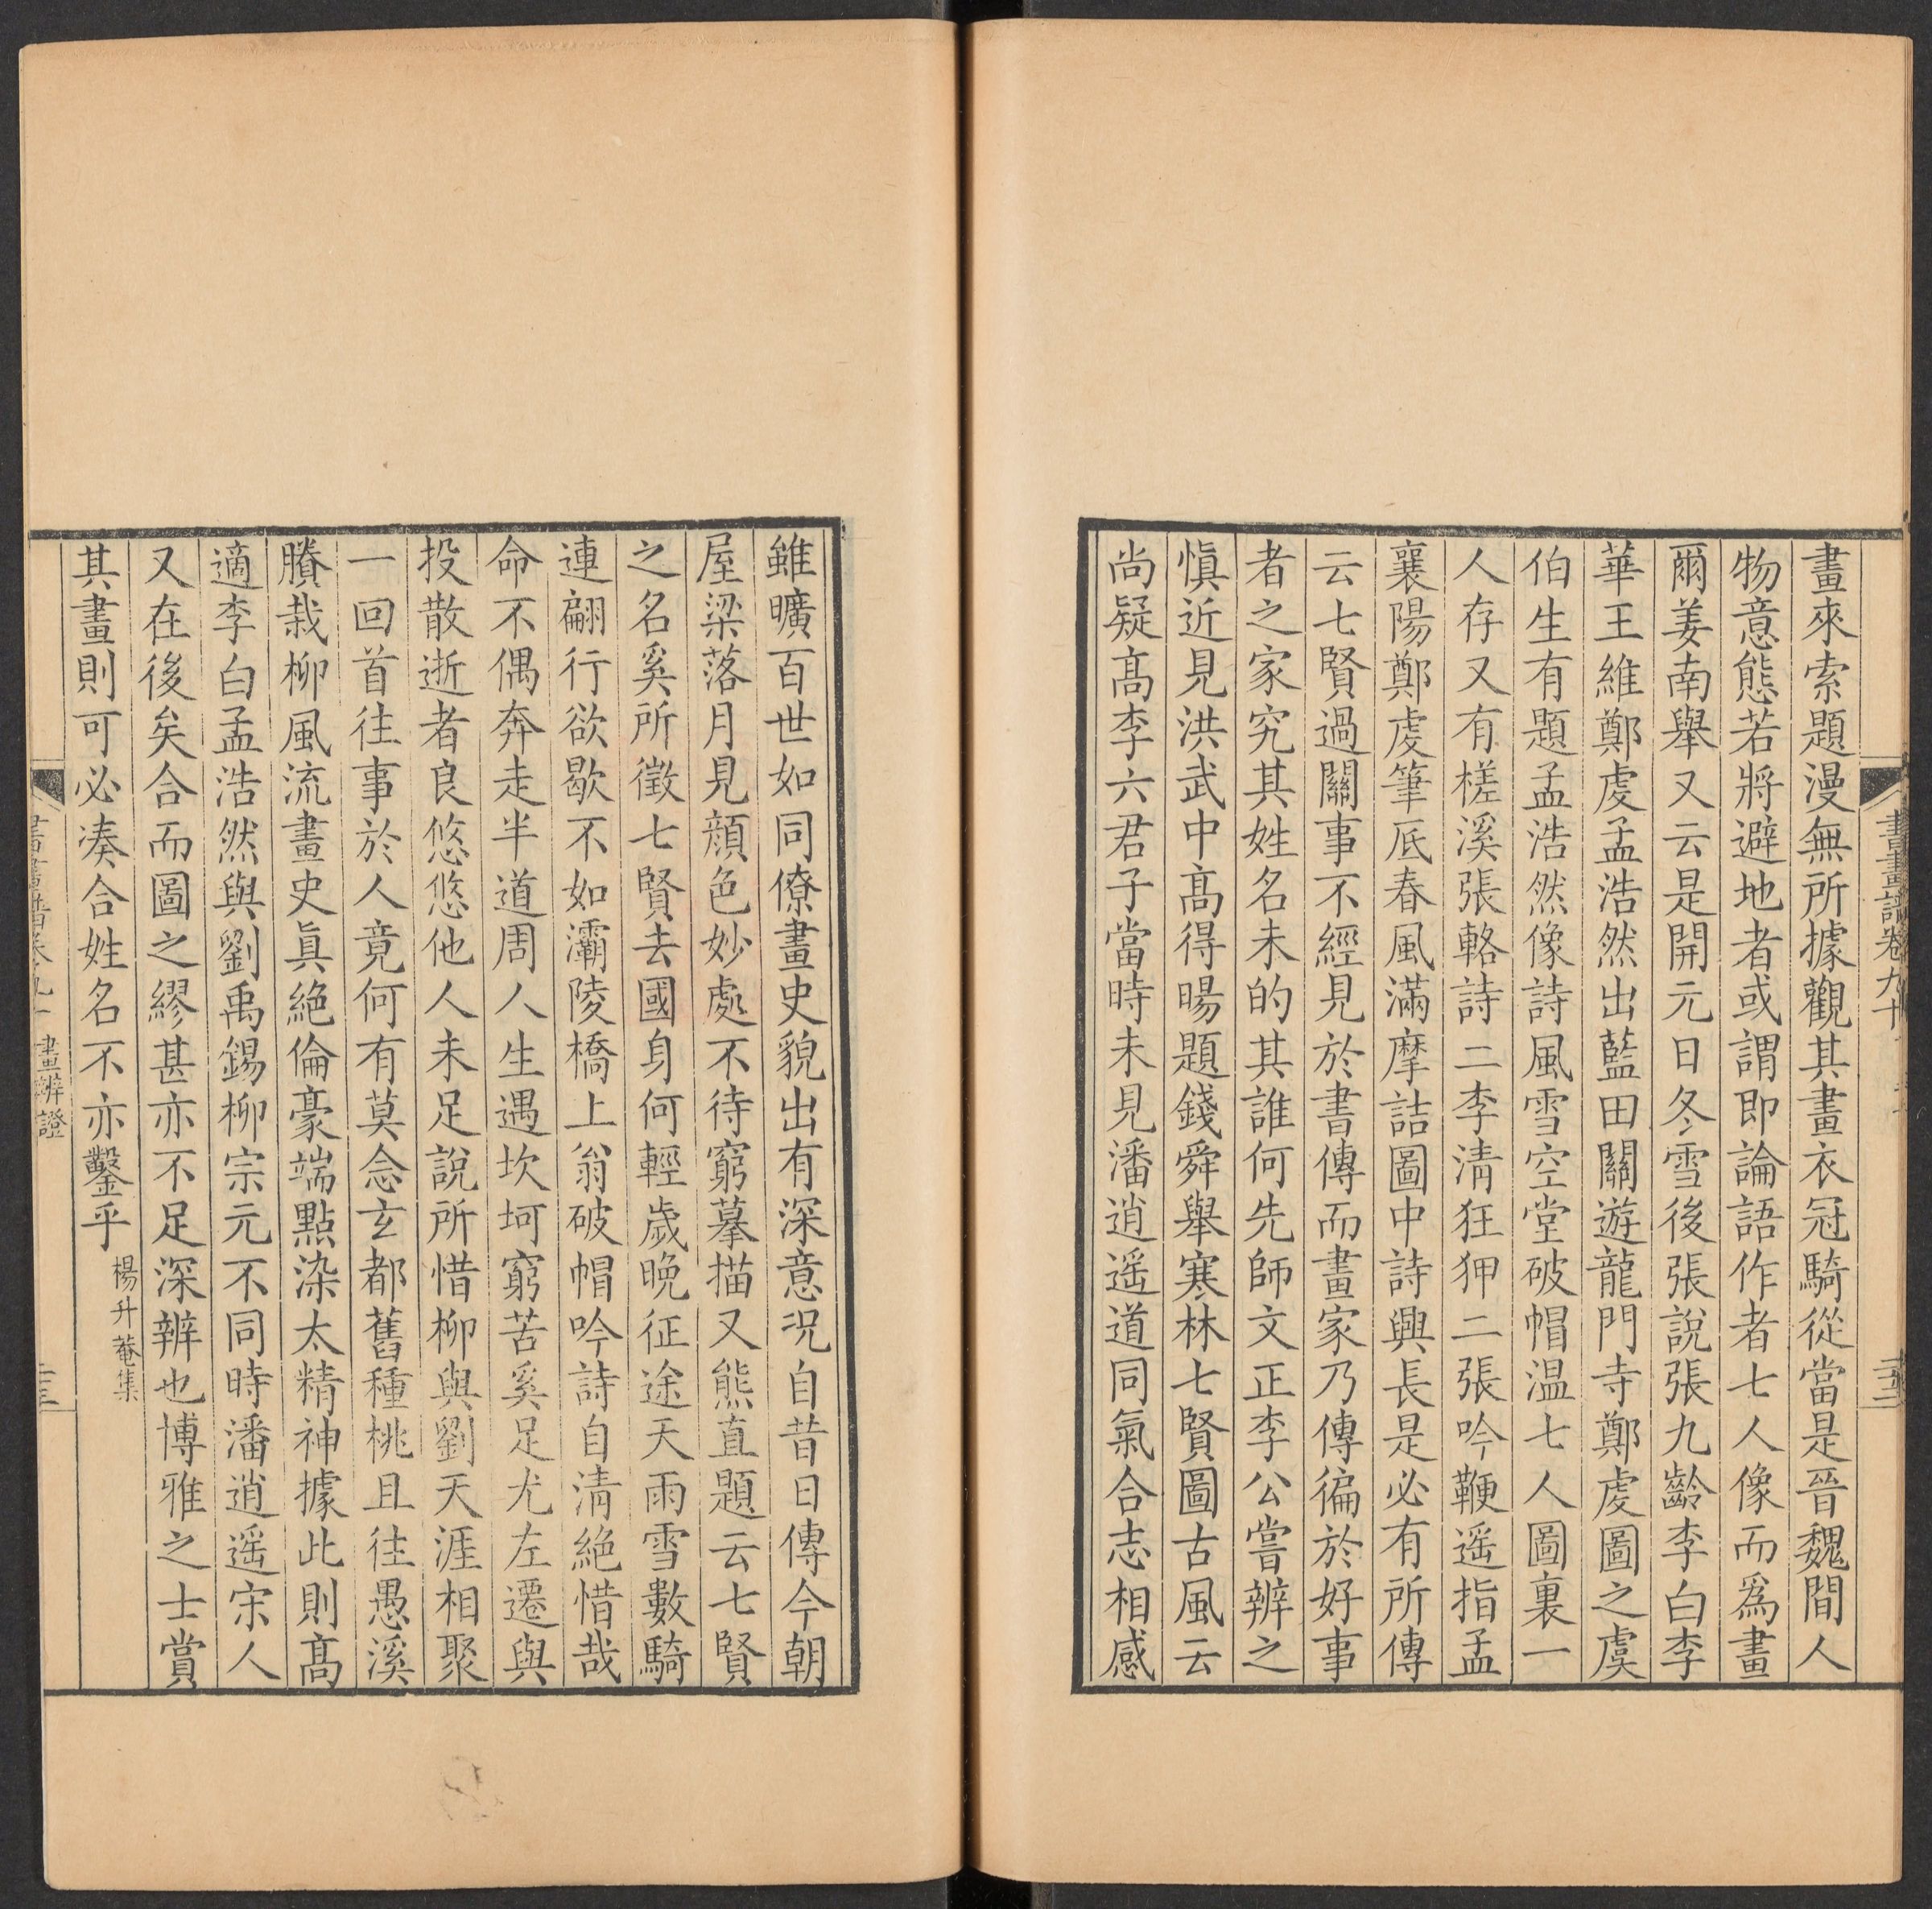 畫來索題漫無所據觀其畫衣冠騎從當是晉魏間人
物意態若將避地者或謂即論語作者七人像而爲畫
爾姜南舉又云是開元日冬雪後張說張九齡李白李
華王維鄭虔孟浩然出藍田關遊龍門寺鄭虔圖之虞
伯生有題孟浩然像詩風雪空堂破帽温七人圖裏一
人存又有槎溪張輅詩二李清狂狎二張吟鞭遥指孟
襄陽鄭虔筆底春風滿摩詰圖中詩興長是必有所傳
云七賢過關事不經見於書傳而畫家乃傳徧於好事
者之家究其姓名未的其誰何先師文正李公嘗辨之
愼近見洪武中髙得暘題錢舜舉寒林七賢圖古風云
尚疑髙李六君子當時未見潘逍遥道同氣合志相感
雖曠百世如同僚畫史貌出有深意况自昔日傳今朝
屋梁落月見顔色妙處不待窮摹描又熊直題云七賢
之名奚所徵七賢去國身何輕歲晚征途天雨雪數騎
連翩行欲歇不如灞陵橋上翁破帽吟詩自清絶惜哉
命不偶奔走半道周人生遇坎坷窮苦奚足尤左遷與
投散逝者良悠悠他人未足說所惜柳與劉天涯相聚
一回首往事於人竟何有莫念玄都舊種桃且往愚溪
賸栽柳風流畫史眞絶倫豪端點染太精神據此則髙
適李白孟浩然與劉禹錫柳宗元不同時潘逍遥宋人
又在後矣合而圖之繆甚亦不足深辨也博雅之士賞
其畫則可必凑合姓名不亦鑿乎 楊升菴集
畫辨證